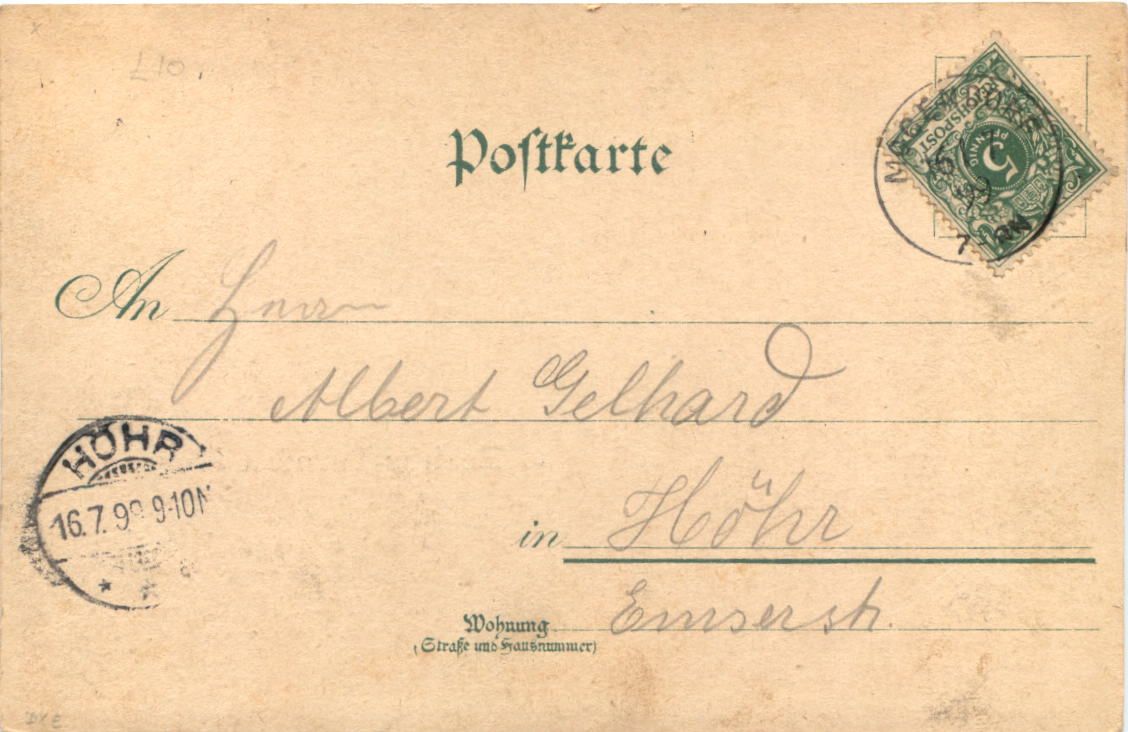 L10
Postkarte
REICHSPOST
5
PFENNIG
7
99
7
An Herrn
Albert Gelhard
HÖHR
16.7.99 9-10N
* *
in Höhr
Wohnung Emserstr.
(Straße und Hausnummer)